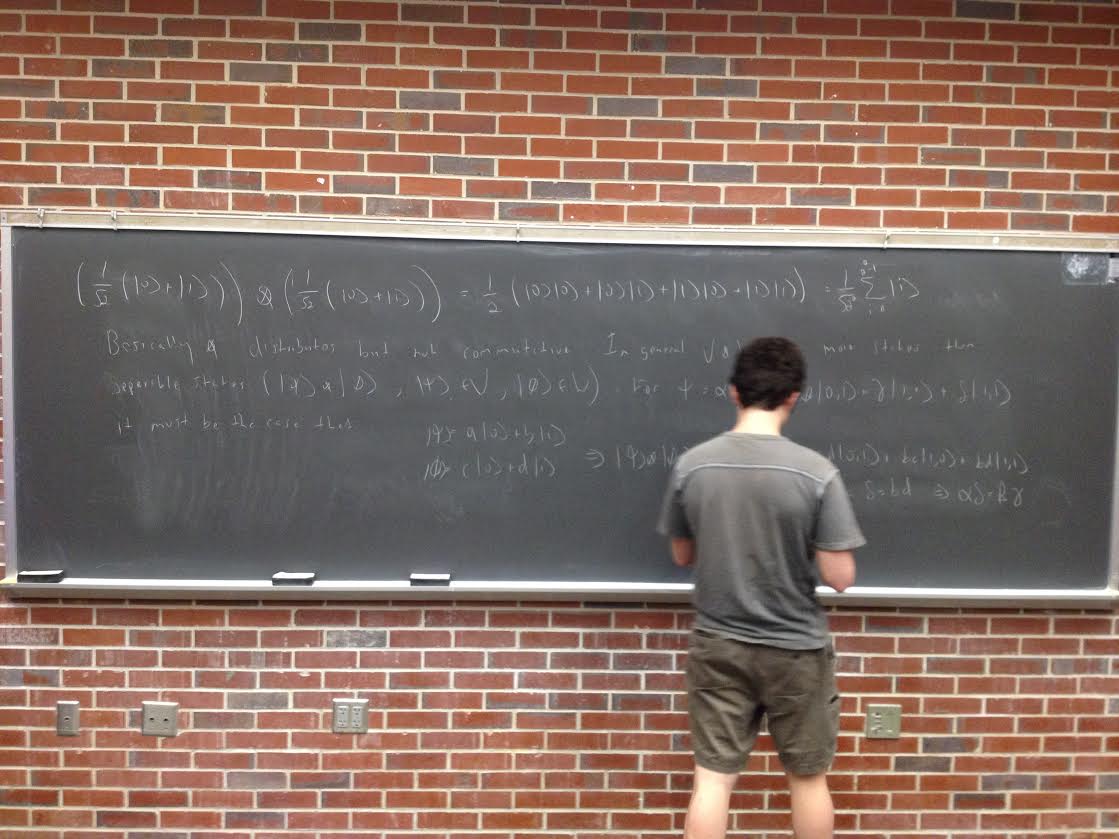 (1/√2 (|0⟩+|1⟩)) ⊗ (1/√2 (|0⟩+|1⟩)) = 1/2 (|0⟩|0⟩+|0⟩|1⟩+|1⟩|0⟩+|1⟩|1⟩) = Σ |i⟩
Basically ⊗ distributes but not commutitive In general V⊗ more states than
seperible states (|ψ⟩⊗|∅⟩, |ψ⟩∈V, |∅⟩∈V). For ψ = α β|0,1⟩+γ|1,0⟩ + δ|1,1⟩
it must be the case that
|ψ⟩= a|0⟩+b|1⟩
|∅⟩= c|0⟩+d|1⟩ ⇒ |ψ⟩⊗ d|0,1⟩+ bc|1,0⟩+ bd|1,1⟩
δ=bd ⇒ αδ=βγ